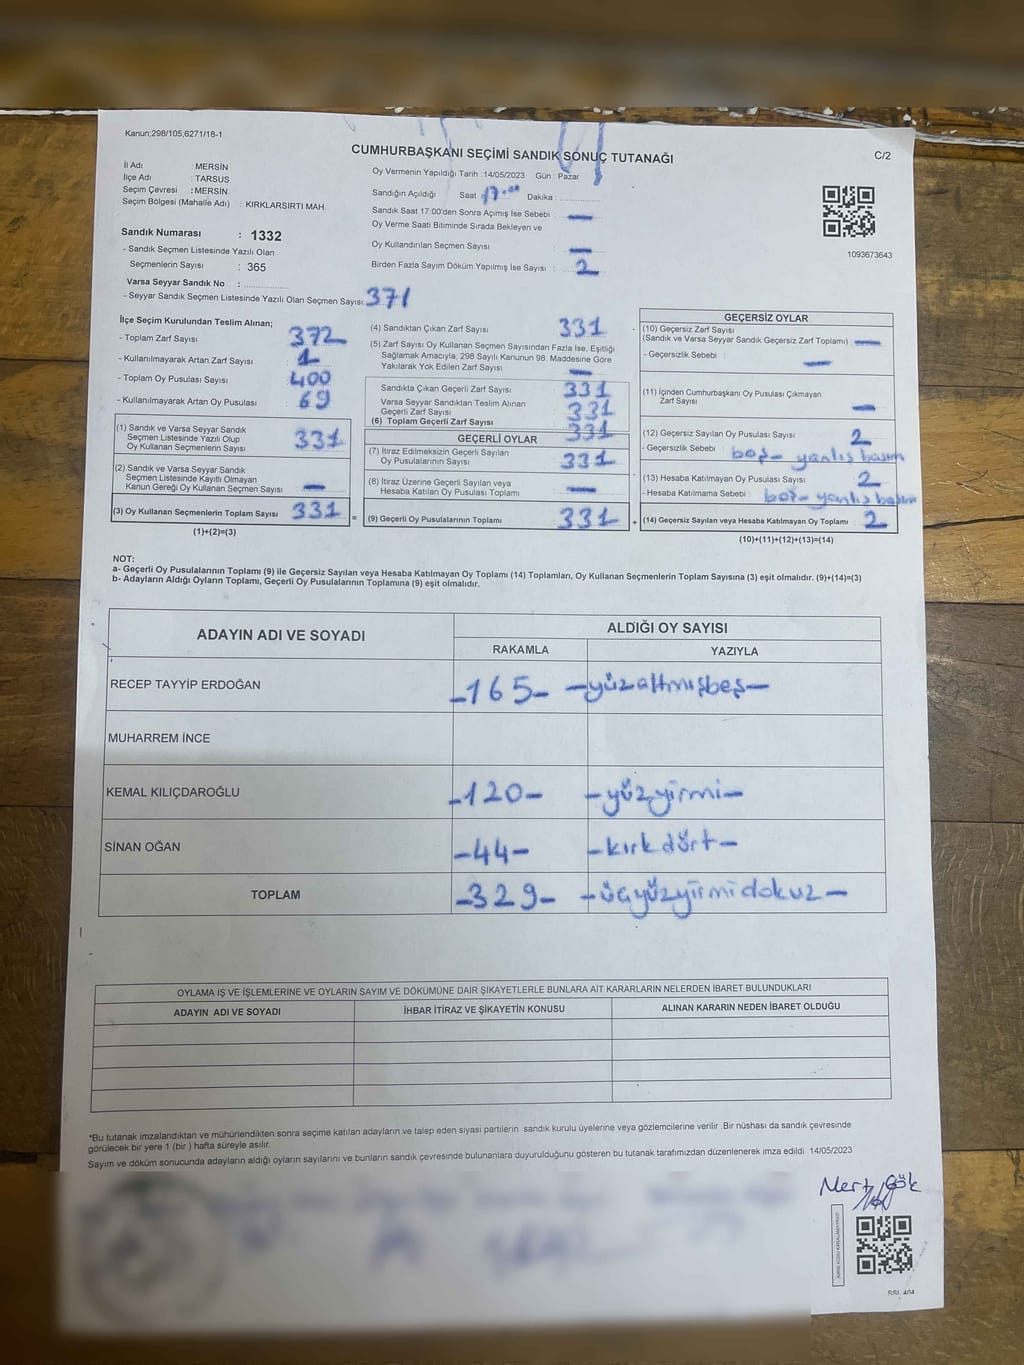 Kanun;298/105,6271/18-1
CUMHURBAŞKANI SEÇİMİ SANDIK SONUÇ TUTANAĞI
C/2
İl Adı : MERSİN
İlçe Adı : TARSUS
Seçim Çevresi : MERSİN
Seçim Bölgesi (Mahalle Adı) : KIRKLARSIRTI MAH.
Sandık Numarası : 1332
- Sandık Seçmen Listesinde Yazılı Olan
Seçmenlerin Sayısı : 365
Varsa Seyyar Sandık No :
- Seyyar Sandık Seçmen Listesinde Yazılı Olan Seçmen Sayısı 371
Oy Vermenin Yapıldığı Tarih :14/05/2023 Gün : Pazar
Sandığın Açıldığı Saat 17.00 Dakika :
Sandık Saat 17:00'den Sonra Açımış İse Sebebi : —
Oy Verme Saati Bitiminde Sırada Bekleyen ve
Oy Kullandırılan Seçmen Sayısı : —
Birden Fazla Sayım Döküm Yapılmış İse Sayısı : 2
1093673643
İlçe Seçim Kurulundan Teslim Alınan;
- Toplam Zarf Sayısı : 372
- Kullanılmayarak Artan Zarf Sayısı : 1
- Toplam Oy Pusulası Sayısı : 400
- Kullanılmayarak Artan Oy Pusulası : 69
(1) Sandık ve Varsa Seyyar Sandık
Seçmen Listesinde Yazılı Olup
Oy Kullanan Seçmenlerin Sayısı : 331
(2) Sandık ve Varsa Seyyar Sandık
Seçmen Listesinde Kayıtlı Olmayan
Kanun Gereği Oy Kullanan Seçmen Sayısı : —
(3) Oy Kullanan Seçmenlerin Toplam Sayısı : 331
(1)+(2)=(3)
(4) Sandıktan Çıkan Zarf Sayısı : 331
(5) Zarf Sayısı Oy Kullanan Seçmen Sayısından Fazla İse, Eşitliği
Sağlamak Amacıyla; 298 Sayılı Kanunun 98. Maddesine Göre
Yakılarak Yok Edilen Zarf Sayısı : —
Sandıkta Çıkan Geçerli Zarf Sayısı : 331
Varsa Seyyar Sandıktan Teslim Alınan
Geçerli Zarf Sayısı : 331
(6) Toplam Geçerli Zarf Sayısı : 331
GEÇERLİ OYLAR
(7) İtiraz Edilmeksizin Geçerli Sayılan
Oy Pusulalarının Sayısı : 331
(8) İtiraz Üzerine Geçerli Sayılan veya
Hesaba Katılan Oy Pusulası Toplamı : —
=
(9) Geçerli Oy Pusulalarının Toplamı : 331
+
GEÇERSİZ OYLAR
(10) Geçersiz Zarf Sayısı
(Sandık ve Varsa Seyyar Sandık Geçersiz Zarf Toplamı) : —
- Geçersizlik Sebebi : —
(11) İçinden Cumhurbaşkanı Oy Pusulası Çıkmayan
Zarf Sayısı : —
(12) Geçersiz Sayılan Oy Pusulası Sayısı : 2
- Geçersizlik Sebebi : boş- yanlış basım
(13) Hesaba Katılmayan Oy Pusulası Sayısı : 2
- Hesaba Katılmama Sebebi : boş- yanlış basım
(14) Geçersiz Sayılan veya Hesaba Katılmayan Oy Toplamı : 2
(10)+(11)+(12)+(13)=(14)
NOT:
a- Geçerli Oy Pusulalarının Toplamı (9) ile Geçersiz Sayılan veya Hesaba Katılmayan Oy Toplamı (14) Toplamları, Oy Kullanan Seçmenlerin Toplam Sayısına (3) eşit olmalıdır. (9)+(14)=(3)
b- Adayların Aldığı Oyların Toplamı, Geçerli Oy Pusulalarının Toplamına (9) eşit olmalıdır.
ADAYIN ADI VE SOYADI
ALDIĞI OY SAYISI
RAKAMLA YAZIYLA
RECEP TAYYİP ERDOĞAN -165- -yüzaltmışbeş-
MUHARREM İNCE
KEMAL KILIÇDAROĞLU -120- -yüzyirmi-
SİNAN OĞAN -44- -kırkdört-
TOPLAM -329- -üçyüzyirmidokuz-
OYLAMA İŞ VE İŞLEMLERİNE VE OYLARIN SAYIM VE DÖKÜMÜNE DAİR ŞİKAYETLERLE BUNLARA AİT KARARLARIN NELERDEN İBARET BULUNDUKLARI
ADAYIN ADI VE SOYADI İHBAR İTİRAZ VE ŞİKAYETİN KONUSU ALINAN KARARIN NEDEN İBARET OLDUĞU
*Bu tutanak imzalandıktan ve mühürlendikten sonra seçime katılan adayların ve talep eden siyasi partilerin sandık kurulu üyelerine veya gözlemcilerine verilir. Bir nüshası da sandık çevresinde
görülecek bir yere 1 (bir) hafta süreyle asılır.
Sayım ve döküm sonucunda adayların aldığı oyların sayılarını ve bunların sandık çevresinde bulunanlara duyurulduğunu gösteren bu tutanak tarafımızdan düzenlenerek imza edildi 14/05/2023
Mert Gök